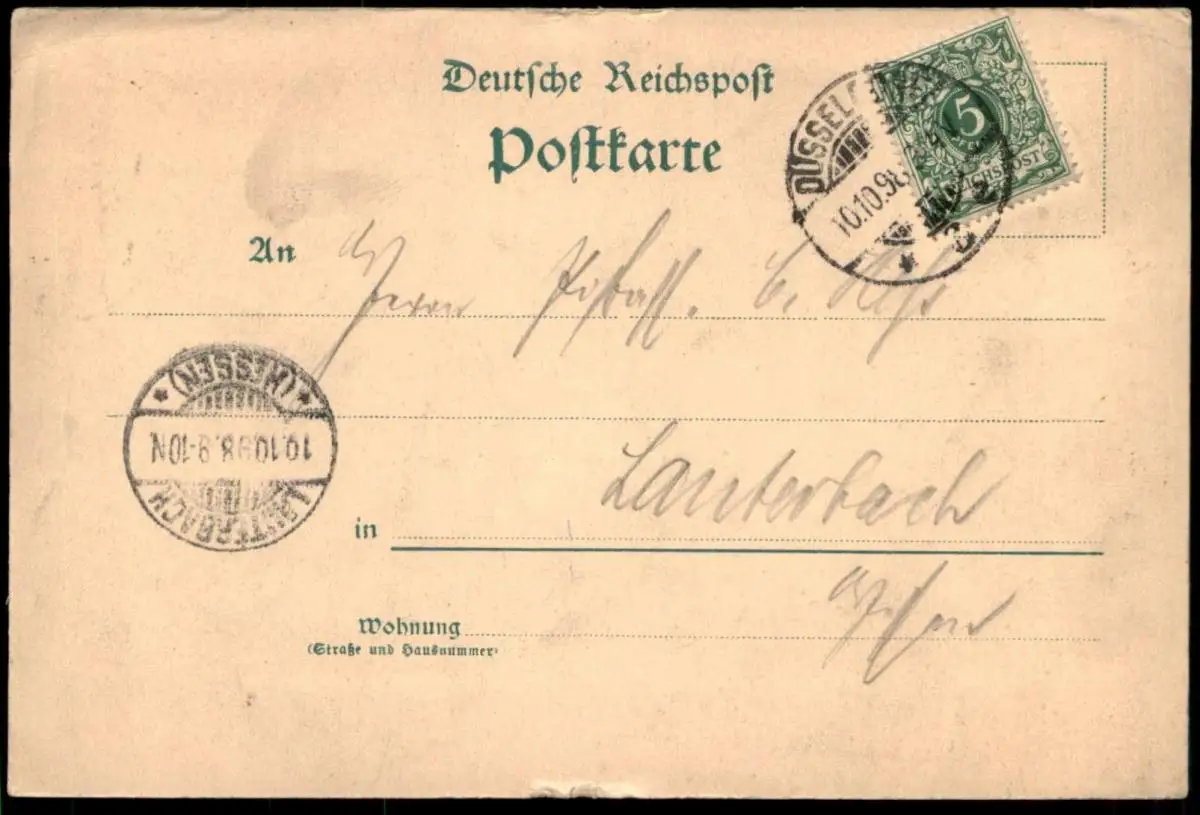 Deutsche Reichspost
Postkarte
5
REICHSPOST
DÜSSELDORF
10.10.98
An
Herrn
(HESSEN)
10.10.98.9-10N.
LAUTERBACH
in Lauterbach
Hessen
Wohnung
(Straße und Hausnummer)